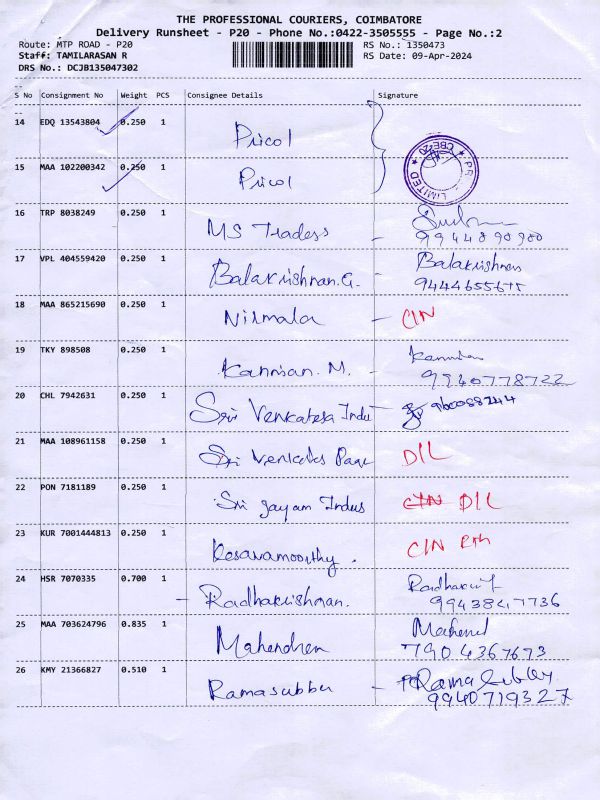 THE PROFESSIONAL COURIERS, COIMBATORE
Delivery Runsheet - P20 - Phone No.:0422-3505555 - Page No.:2
Route: MTP ROAD - P20
RS No.: 1350473
Staff: TAMILARASAN R
RS Date: 09-Apr-2024
DRS No.: DCJB135047302
S No Consignment No Weight PCS Consignee Details Signature
14 EDQ 13543804 0.250 1 Pricol
15 MAA 102200342 0.250 1 Pricol
LIMITED ★ CBE-20 ★
16 TRP 8038249 0.250 1 MS Tradess - 9944890900
17 VPL 404559420 0.250 1 Balakrishnan.G. - Balakrishnan
9444655675
18 MAA 865215690 0.250 1 Nirmala - C/N
19 TKY 898508 0.250 1 Kannian. M. - Kannian
9940778722
20 CHL 7942631 0.250 1 Sri Venkatesa Indus
21 MAA 108961158 0.250 1 Sri Venkates Page D/L
22 PON 7181189 0.250 1 Sri Jayam Indus C/N D/L
23 KUR 7001444813 0.250 1 Kesavamoorthy. C/N
24 HSR 7070335 0.700 1 - Radhakrishnan.
9943847736
25 MAA 703624796 0.835 1 Mahendren
7904367673
26 KMY 21366827 0.510 1 Ramasubbu - Ramasubbu
9940719327